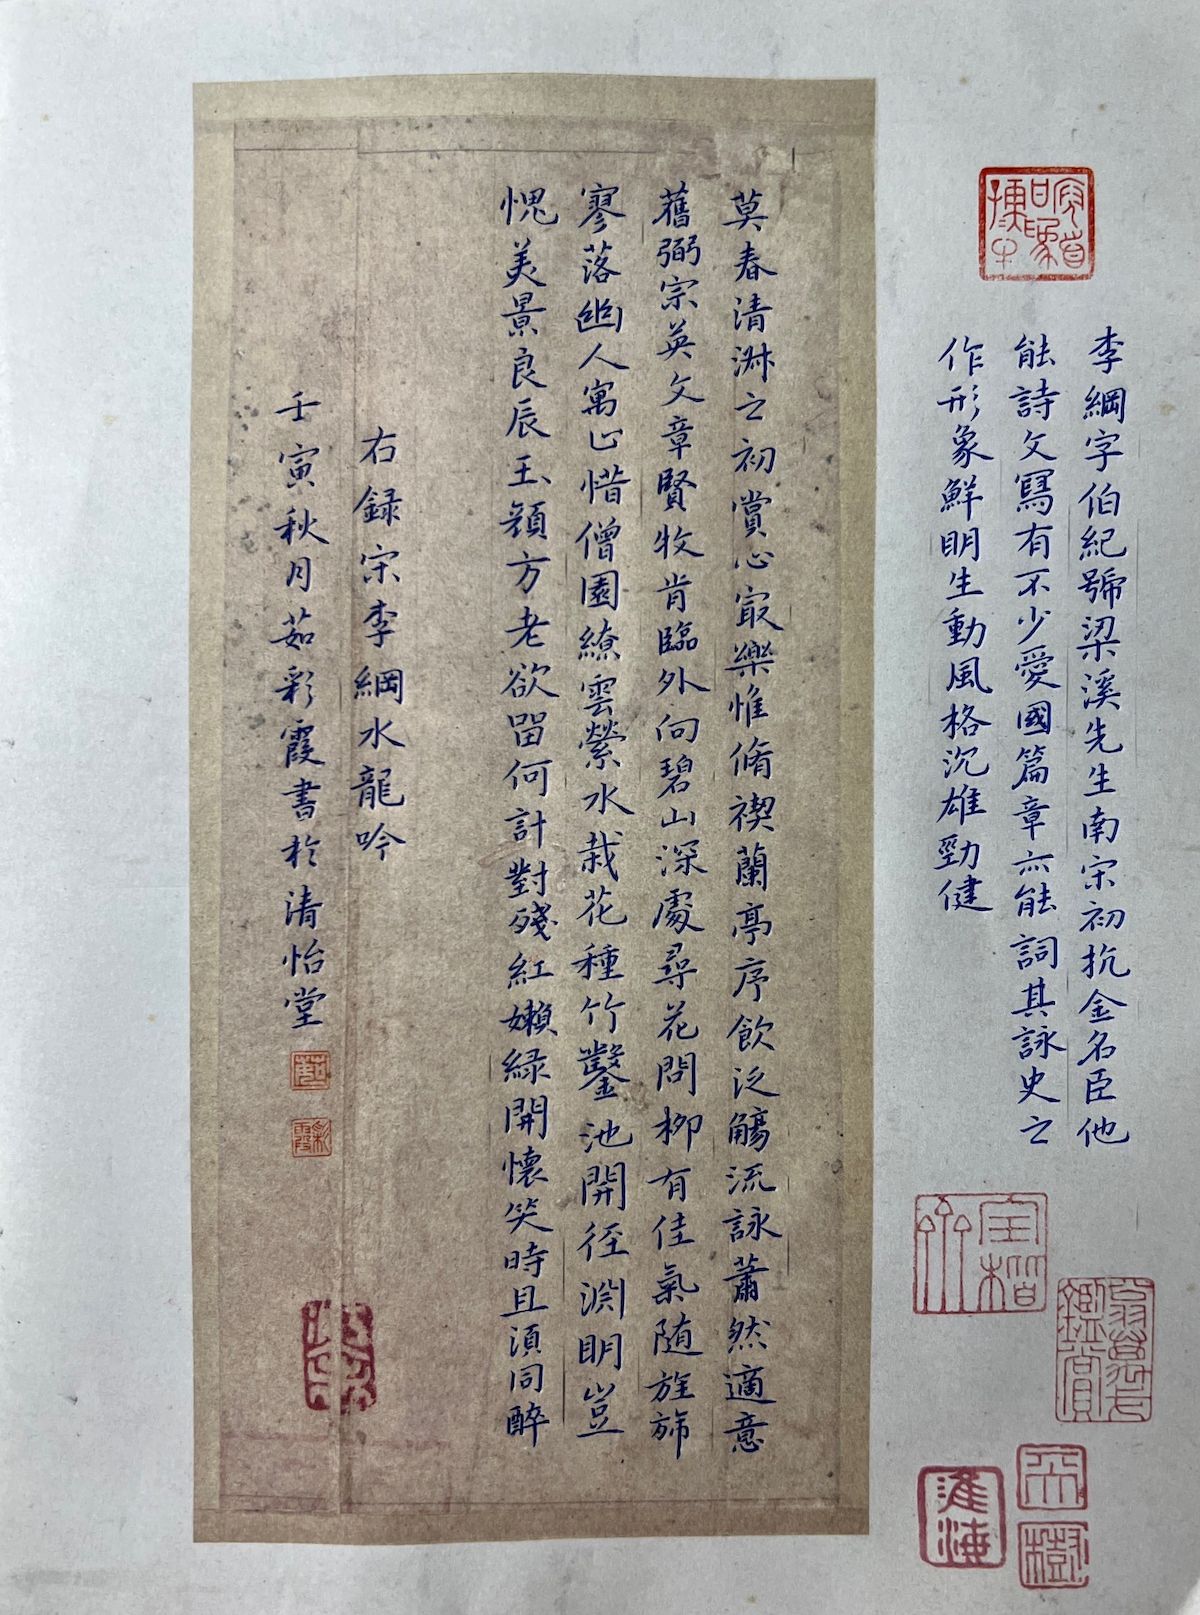 李綱字伯紀號梁溪先生南宋初抗金名臣他
能詩文寫有不少愛國篇章亦能詞其詠史之
作形象鮮明生動風格沉雄勁健
莫春清淑之初賞心㝡樂惟脩禊蘭亭序飲泛觴流詠蕭然適意
舊弼宗英文章賢牧肯臨外向碧山深處尋花問柳有佳氣随旌斾
寥落幽人寓止惜僧園繚雲縈水栽花種竹鑿池開徑淵明豈
愧美景良辰玉顏方老欲留何計對殘紅嬾綠開懷笑時且須同醉
右録宋李綱水龍吟
壬寅秋月茹彩霞書於清怡堂
茹
彩霞